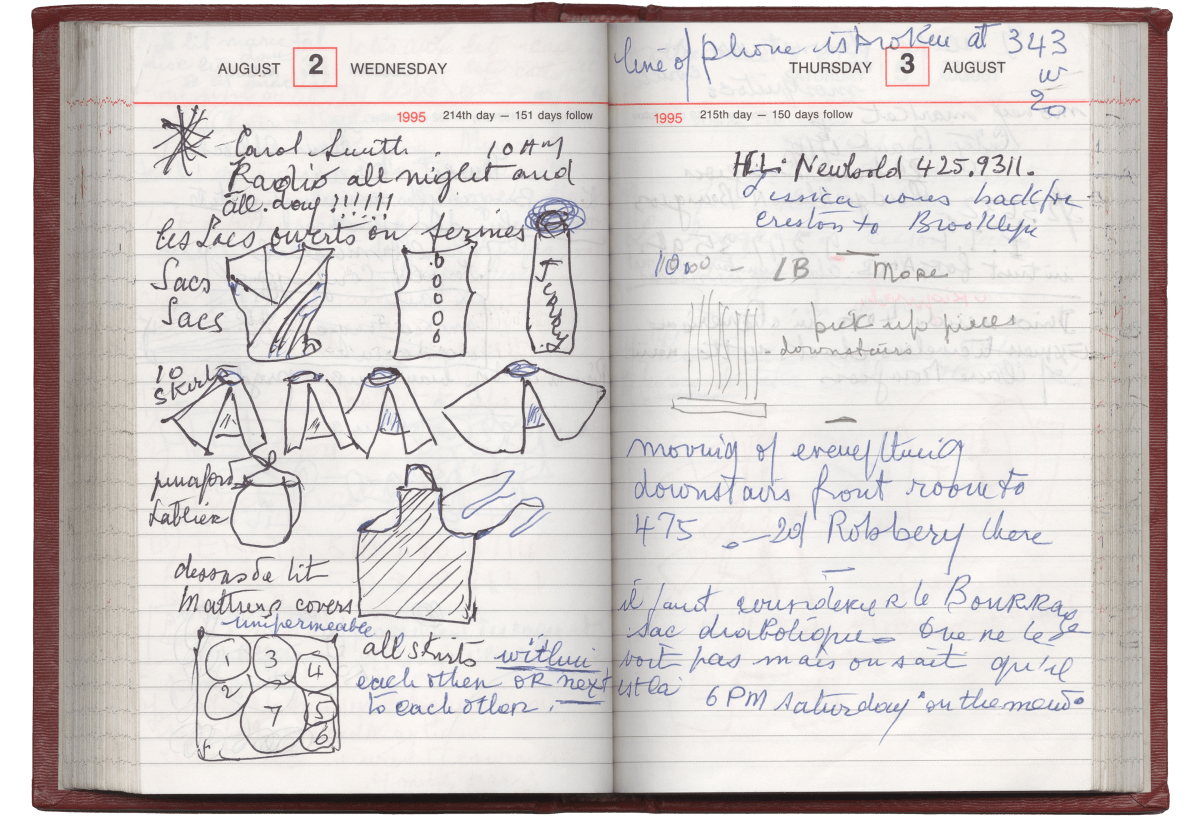 AUGUST 2 WEDNESDAY
1995 214th day — 151 days follow
Carol Smith. 10 AM
Radio all night and
all.day !!!!!!
les Sacs ouverts ou fermés
Sacs
Sacs
10
skirts
pinafore
tablier
dessus de lit
Mattress covers
all skirts within
each other OR next
to each other.
1
2
3
4
5
6
7
line of phone is broken at 343
W
20
THURSDAY 3 AUGUST
1995 215th day — 150 days follow
Newbold 425.9311.
Jessica comes back
to Brooklyn
— LB — More
pick up pieces
downstairs
moving of everything
downstairs front room to
475 — 2d Robbery there
il faut le BOURRAGE
sac diabolique. On ne le
voit pas mais on sait qu'il
est là 6 PM Saturday